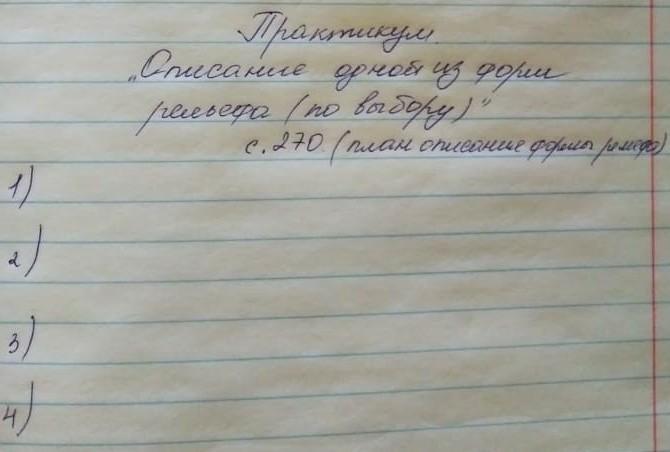 Практикум.
„Описание одной из форм
рельефа (по выбору)"
с. 270. (план описание формы рельефа)
1)
2)
3)
4)